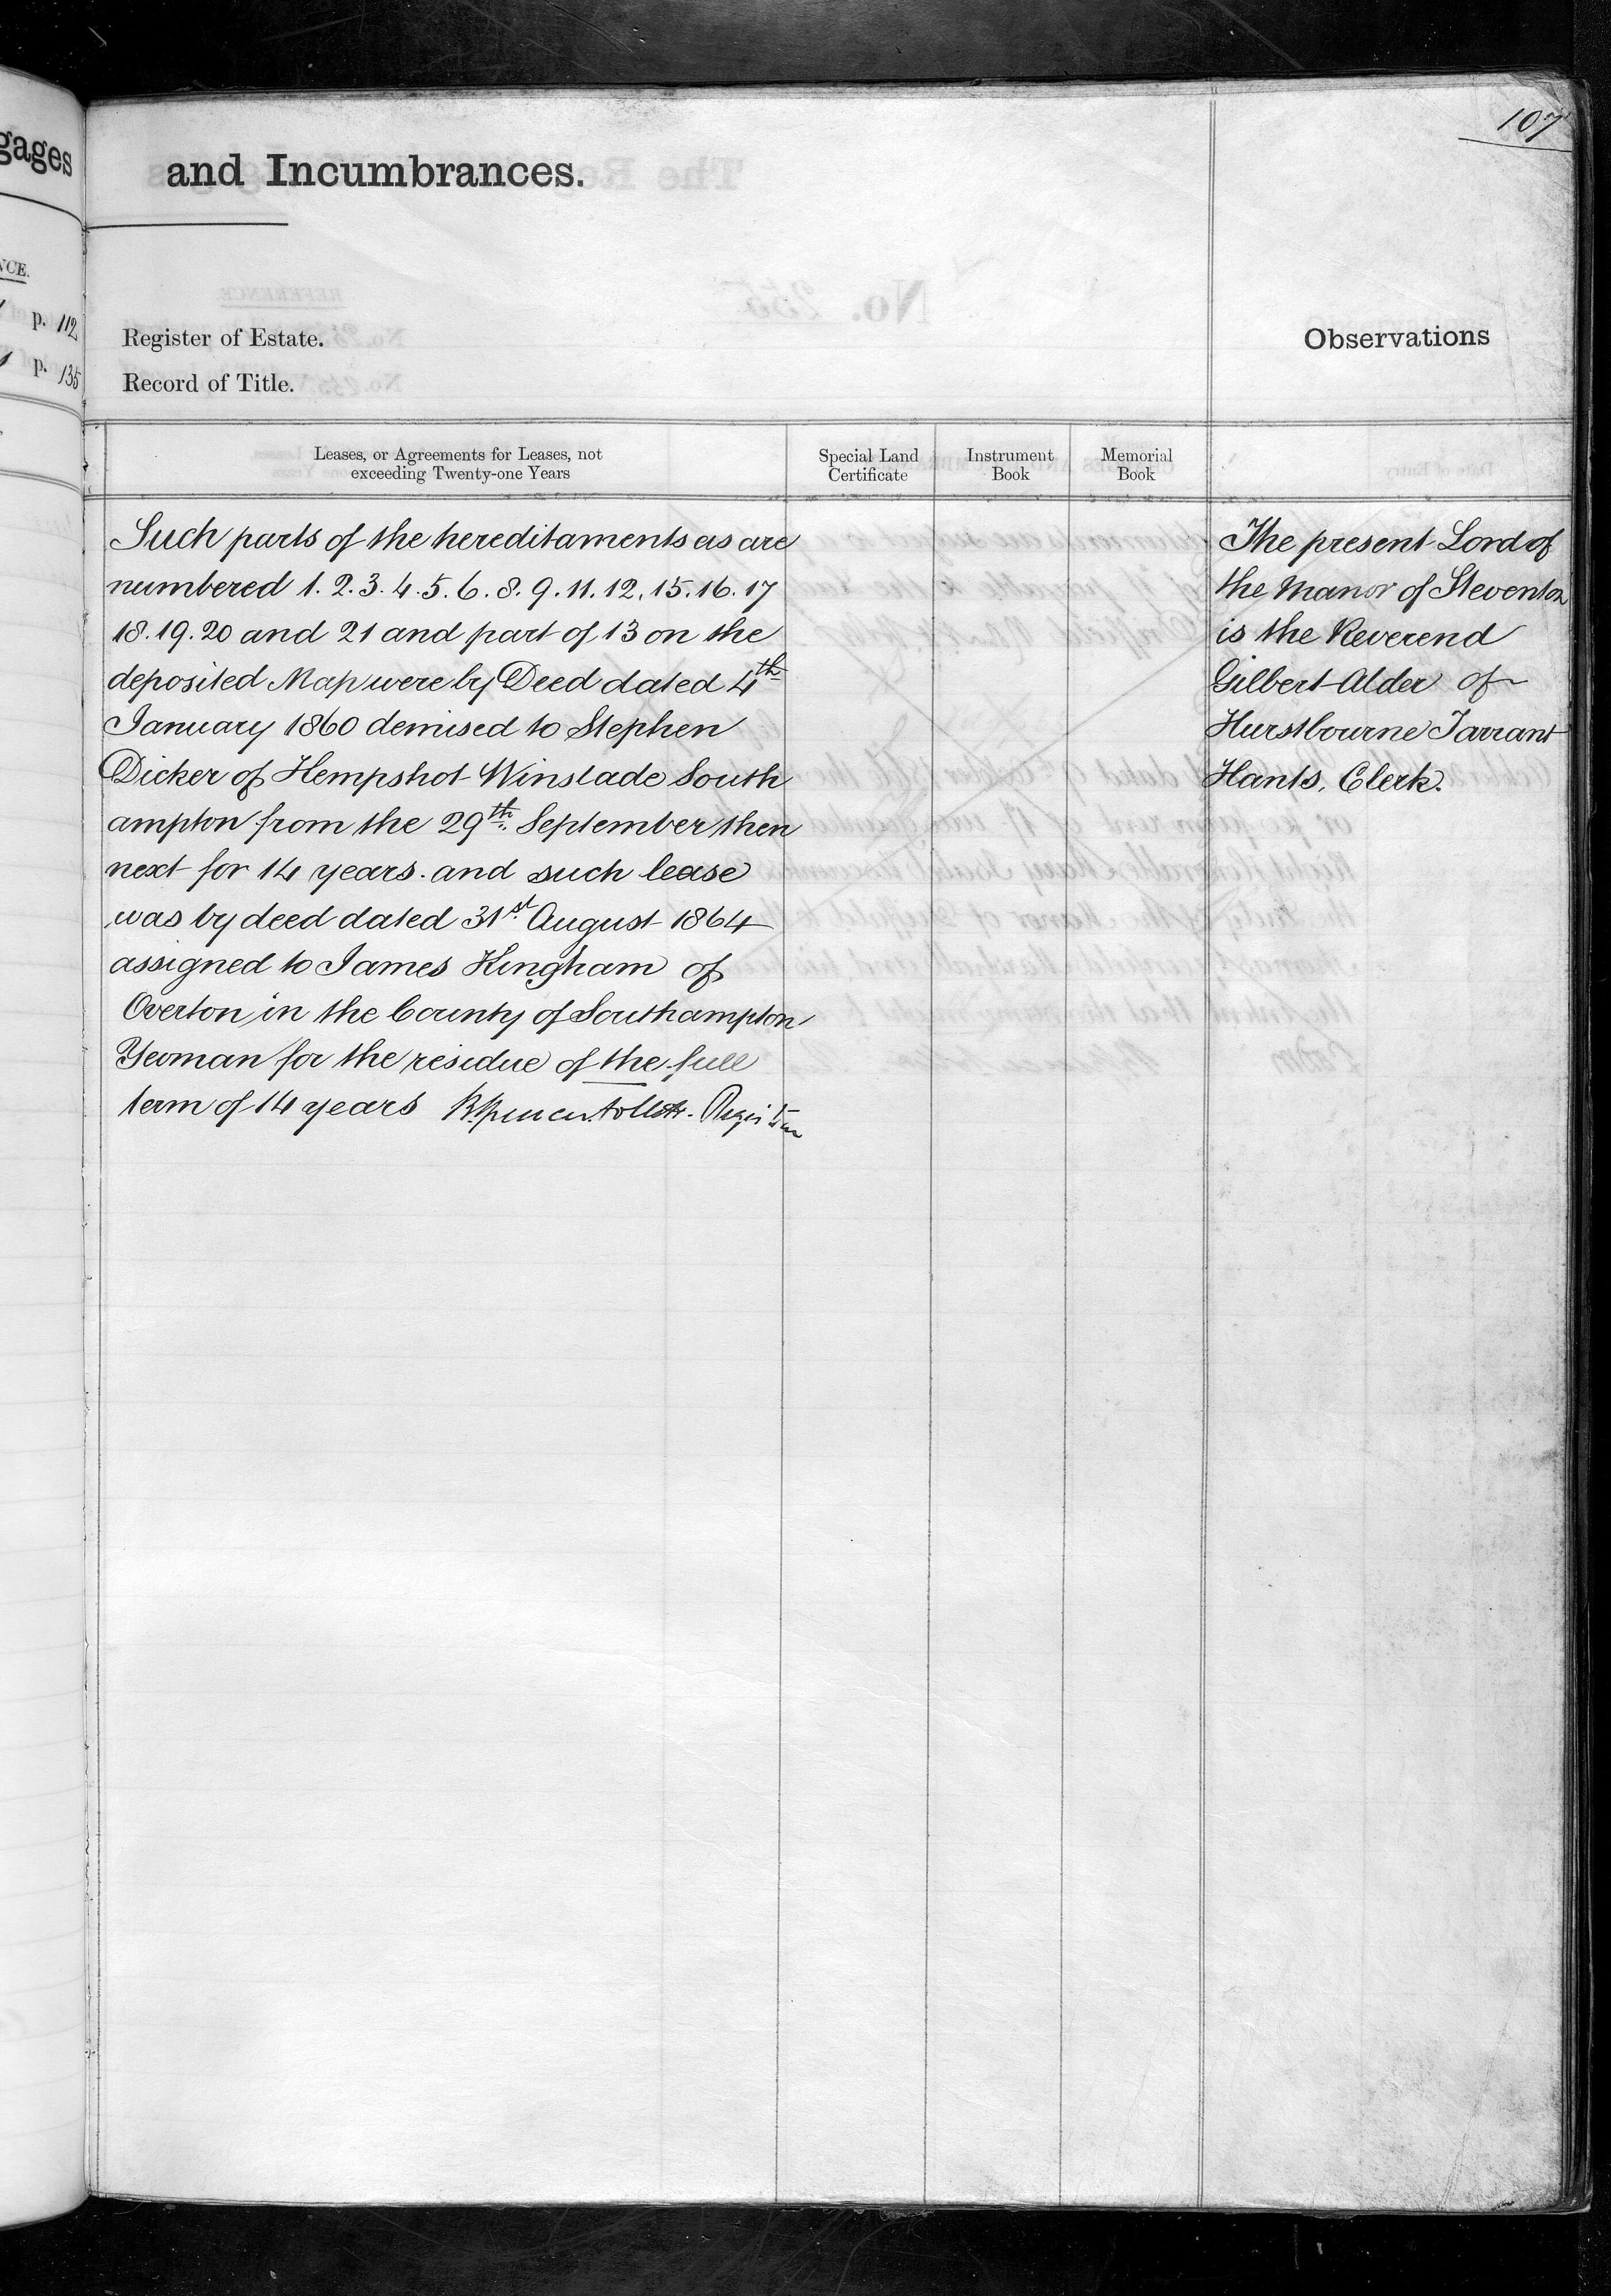 107
gages
and Incumbrances.
NCE.
p. 112
p. 135
Register of Estate.
Record of Title.
Observations
Leases, or Agreements for Leases, not
exceeding Twenty-one Years
Special Land
Certificate
Instrument
Book
Memorial
Book
Such parts of the hereditaments as are
numbered 1. 2. 3. 4. 5. 6. 8. 9. 11. 12. 15. 16. 17
18. 19. 20 and 21 and part of 13 on the
deposited Map were by Deed dated 4th
January 1860 demised to Stephen
Dicker of Hempshot Winslade South
ampton from the 29th September then
next for 14 years. and such lease
was by deed dated 31st August 1864
assigned to James Kingham of
Overton in the County of Southampton
Yeoman for the residue of the full
term of 14 years Registrar
The present Lord of
the Manor of Steventon
is the Reverend
Gilbert Alder of
Hurstbourne Tarrant
Hants, Clerk.